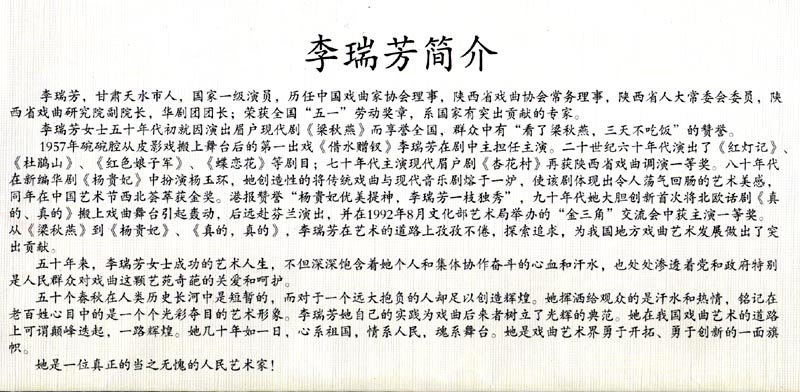 李瑞芳简介
李瑞芳，甘肃天水市人，国家一级演员，历任中国戏曲家协会理事，陕西省戏曲协会常务理事，陕西省人大常委会委员，陕
西省戏曲研究院副院长，华剧团团长；荣获全国“五一”劳动奖章，系国家有突出贡献的专家。
李瑞芳女士五十年代初就因演出眉户现代剧《梁秋燕》而享誉全国，群众中有“看了梁秋燕，三天不吃饭”的赞誉。
1957年碗碗腔从皮影戏搬上舞台后的第一出戏《借水赠钗》李瑞芳在剧中主担任主演。二十世纪六十年代演出了《红灯记》、
《杜鹃山》、《红色娘子军》、《蝶恋花》等剧目；七十年代主演现代眉户剧《杏花村》再获陕西省戏曲调演一等奖。八十年代
在新编华剧《杨贵妃》中扮演杨玉环，她创造性的将传统戏曲与现代音乐剧熔于一炉，使该剧体现出令人荡气回肠的艺术美感，
同年在中国艺术节西北荟萃获金奖。港报赞誉“杨贵妃优美提神，李瑞芳一枝独秀”，九十年代她大胆创新首次将北欧话剧《真
的、真的》搬上戏曲舞台引起轰动，后远赴芬兰演出，并在1992年8月文化部艺术局举办的“金三角”交流会中获主演一等奖。
从《梁秋燕》到《杨贵妃》、《真的，真的》，李瑞芳在艺术的道路上孜孜不倦，探索追求，为我国地方戏曲艺术发展做出了突
出贡献。
五十年来，李瑞芳女士成功的艺术人生，不但深深饱含着她个人和集体协作奋斗的心血和汗水，也处处渗透着党和政府特别
是人民群众对戏曲这颗艺苑奇葩的关爱和呵护。
五十个春秋在人类历史长河中是短暂的，而对于一个远大抱负的人却足以创造辉煌。她挥洒给观众的是汗水和热情，铭记在
老百姓心目中的是一个个光彩夺目的艺术形象。李瑞芳她自己的实践为戏曲后来者树立了光辉的典范。她在我国戏曲艺术的道路
上可谓颠峰迭起，一路辉煌。她几十年如一日，心系祖国，情系人民，魂系舞台。她是戏曲艺术界勇于开拓、勇于创新的一面旗
帜。
她是一位真正的当之无愧的人民艺术家！